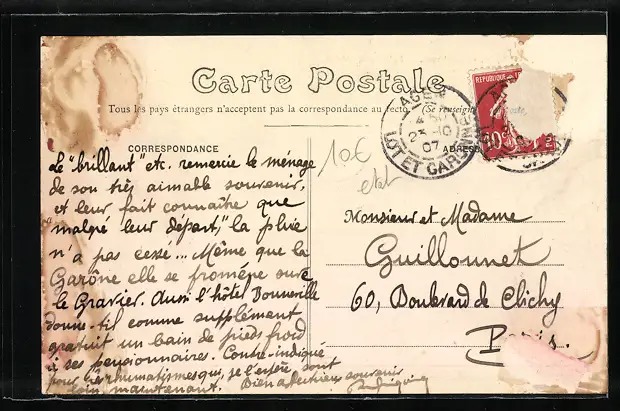 Carte Postale
Tous les pays étrangers n'acceptent pas la correspondance au recto (Se renseigner
CORRESPONDANCE
Le "brillant" etc. remercie le ménage
de son très aimable souvenir,
et leur fait connaître que
"malgré leur départ," la pluie
n'a pas cessé... Même que la
Garône elle se promène sur
le Gravier. Aussi l'hôtel Bonneville
donne-t-il comme supplément
gratuit un bain de pieds froid
à ses pensionnaires. Contre-indiqué
pour les rhumatismes qui, je l'espère, sont
loin maintenant. Bien affectueux souvenir
10€
etat
AGEN
23-10
07
LOT ET GARONNE
REPUBLIQUE
10
ADRESSE
Monsieur et Madame
Guillonnet
60, Boulevard de Clichy
Paris.